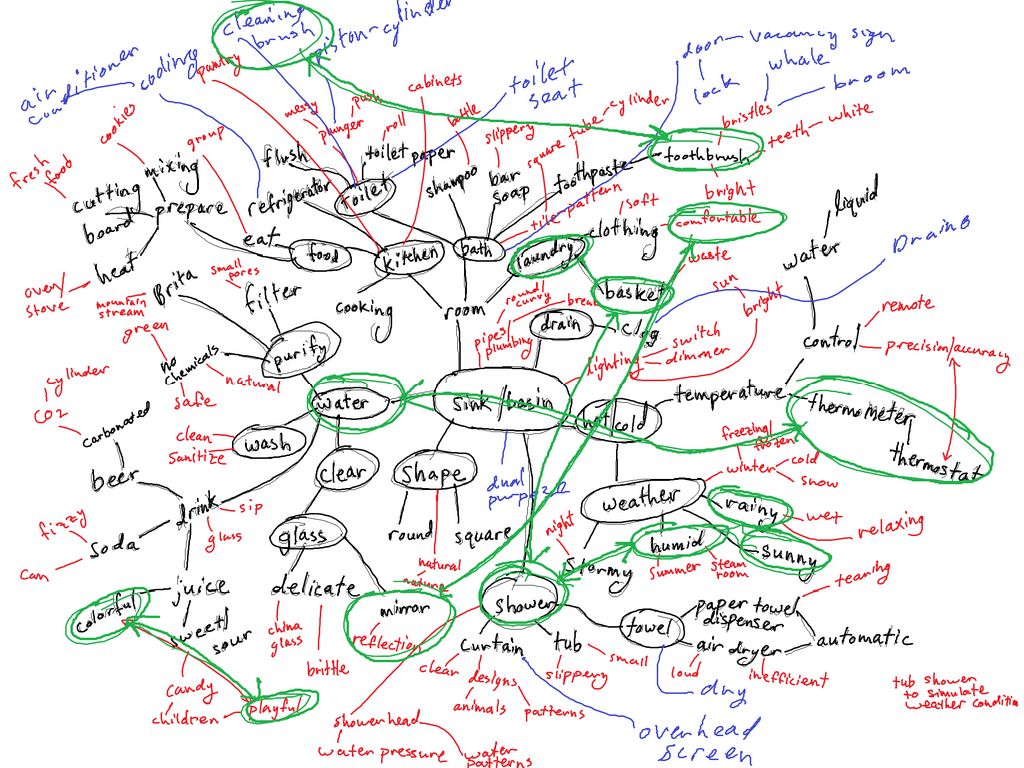 cleaning
brush
piston cylinder
door
vacancy sign
lock
whale
broom
air
conditioner
pantry
toilet
seat
cabinets
messy
push
plunger
roll
bottle
slippery
square
tube
cylinder
bristles
teeth
white
toothbrush
bright
cookies
group
fresh
food
mixing
cutting
board
prepare
heat
oven/
stove
flush
toilet paper
refrigerator
toilet
shampoo
bar
soap
toothpaste
tile pattern
soft
clothing
comfortable
liquid
water
Draino
eat
food
kitchen
bath
laundry
waste
basket
cooking
room
Brita
small
pores
filter
mountain
stream
green
no
chemicals
purify
natural
safe
round/
curvy
pipes
plumbing
drain
clog
sun
bright
switch
dimmer
lighting
remote
control
precision/accuracy
temperature
thermometer
thermostat
cylinder
CO2
carbonated
beer
water
sink/basin
hot/cold
wash
clean
sanitize
clear
shape
dual
purpose
freezing/
frozen
winter
cold
snow
weather
rainy
wet
relaxing
humid
sunny
summer
steam
room
night
stormy
drink
sip
glass
fizzy
soda
can
glass
round
square
natural
nature
juice
delicate
mirror
reflection
shower
colorful
sweet/
sour
china
glass
brittle
candy
children
playful
curtain
tub
small
slippery
clear
designs
animals
patterns
towel
paper towel
dispenser
tearing
air dryer
automatic
loud
inefficient
dry
tub shower
to simulate
weather conditio
showerhead
water pressure
water
patterns
overhead
screen